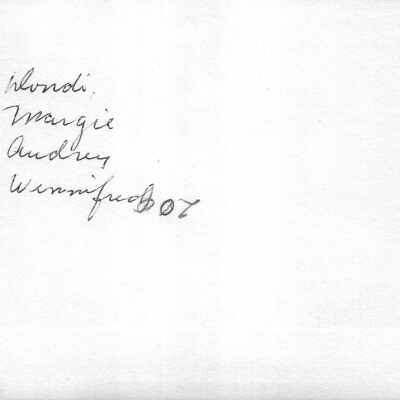 Dondi,
Margie
Audrey
Winnifred 02